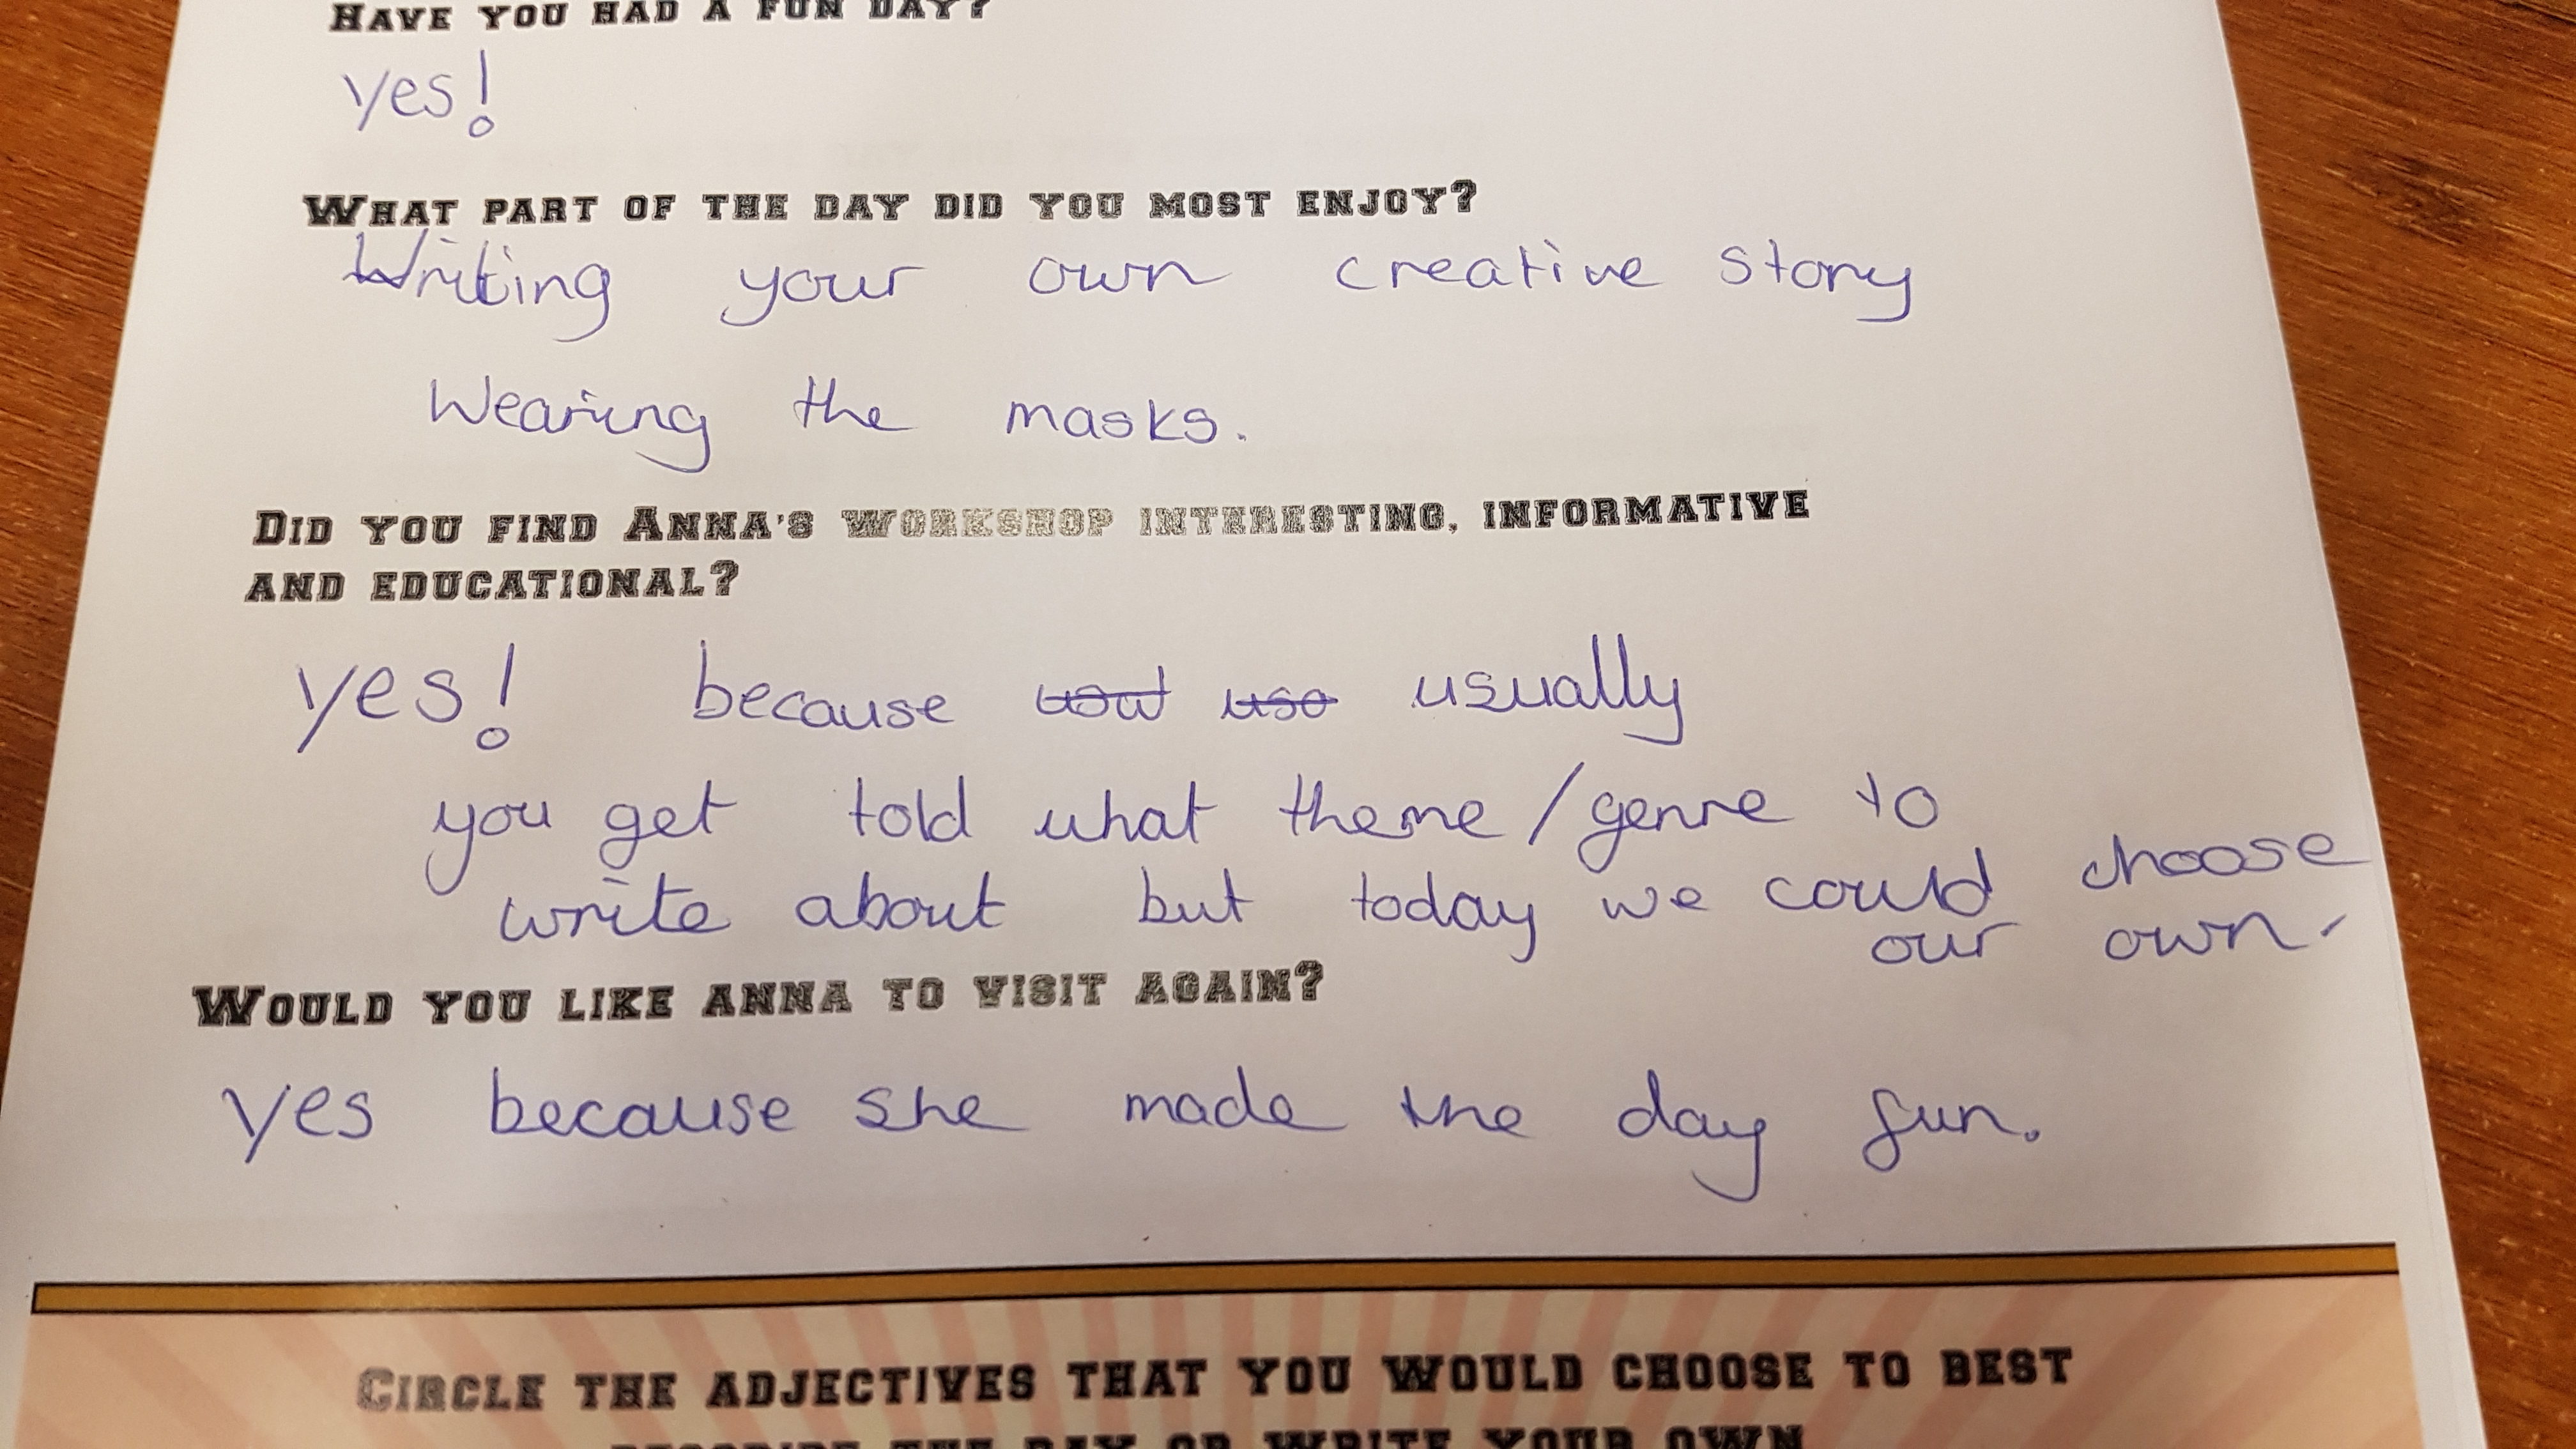 HAVE YOU HAD A FUN DAY?
yes!
WHAT PART OF THE DAY DID YOU MOST ENJOY?
Writing your own creative story
Wearing the masks.
DID YOU FIND ANNA'S WORKSHOP INTERESTING, INFORMATIVE
AND EDUCATIONAL?
yes! because usually
you get told what theme/genre to
write about but today we could choose
our own.
WOULD YOU LIKE ANNA TO VISIT AGAIN?
yes because she made the day fun.
CIRCLE THE ADJECTIVES THAT YOU WOULD CHOOSE TO BEST
DESCRIBE THE DAY OR WRITE YOUR OWN